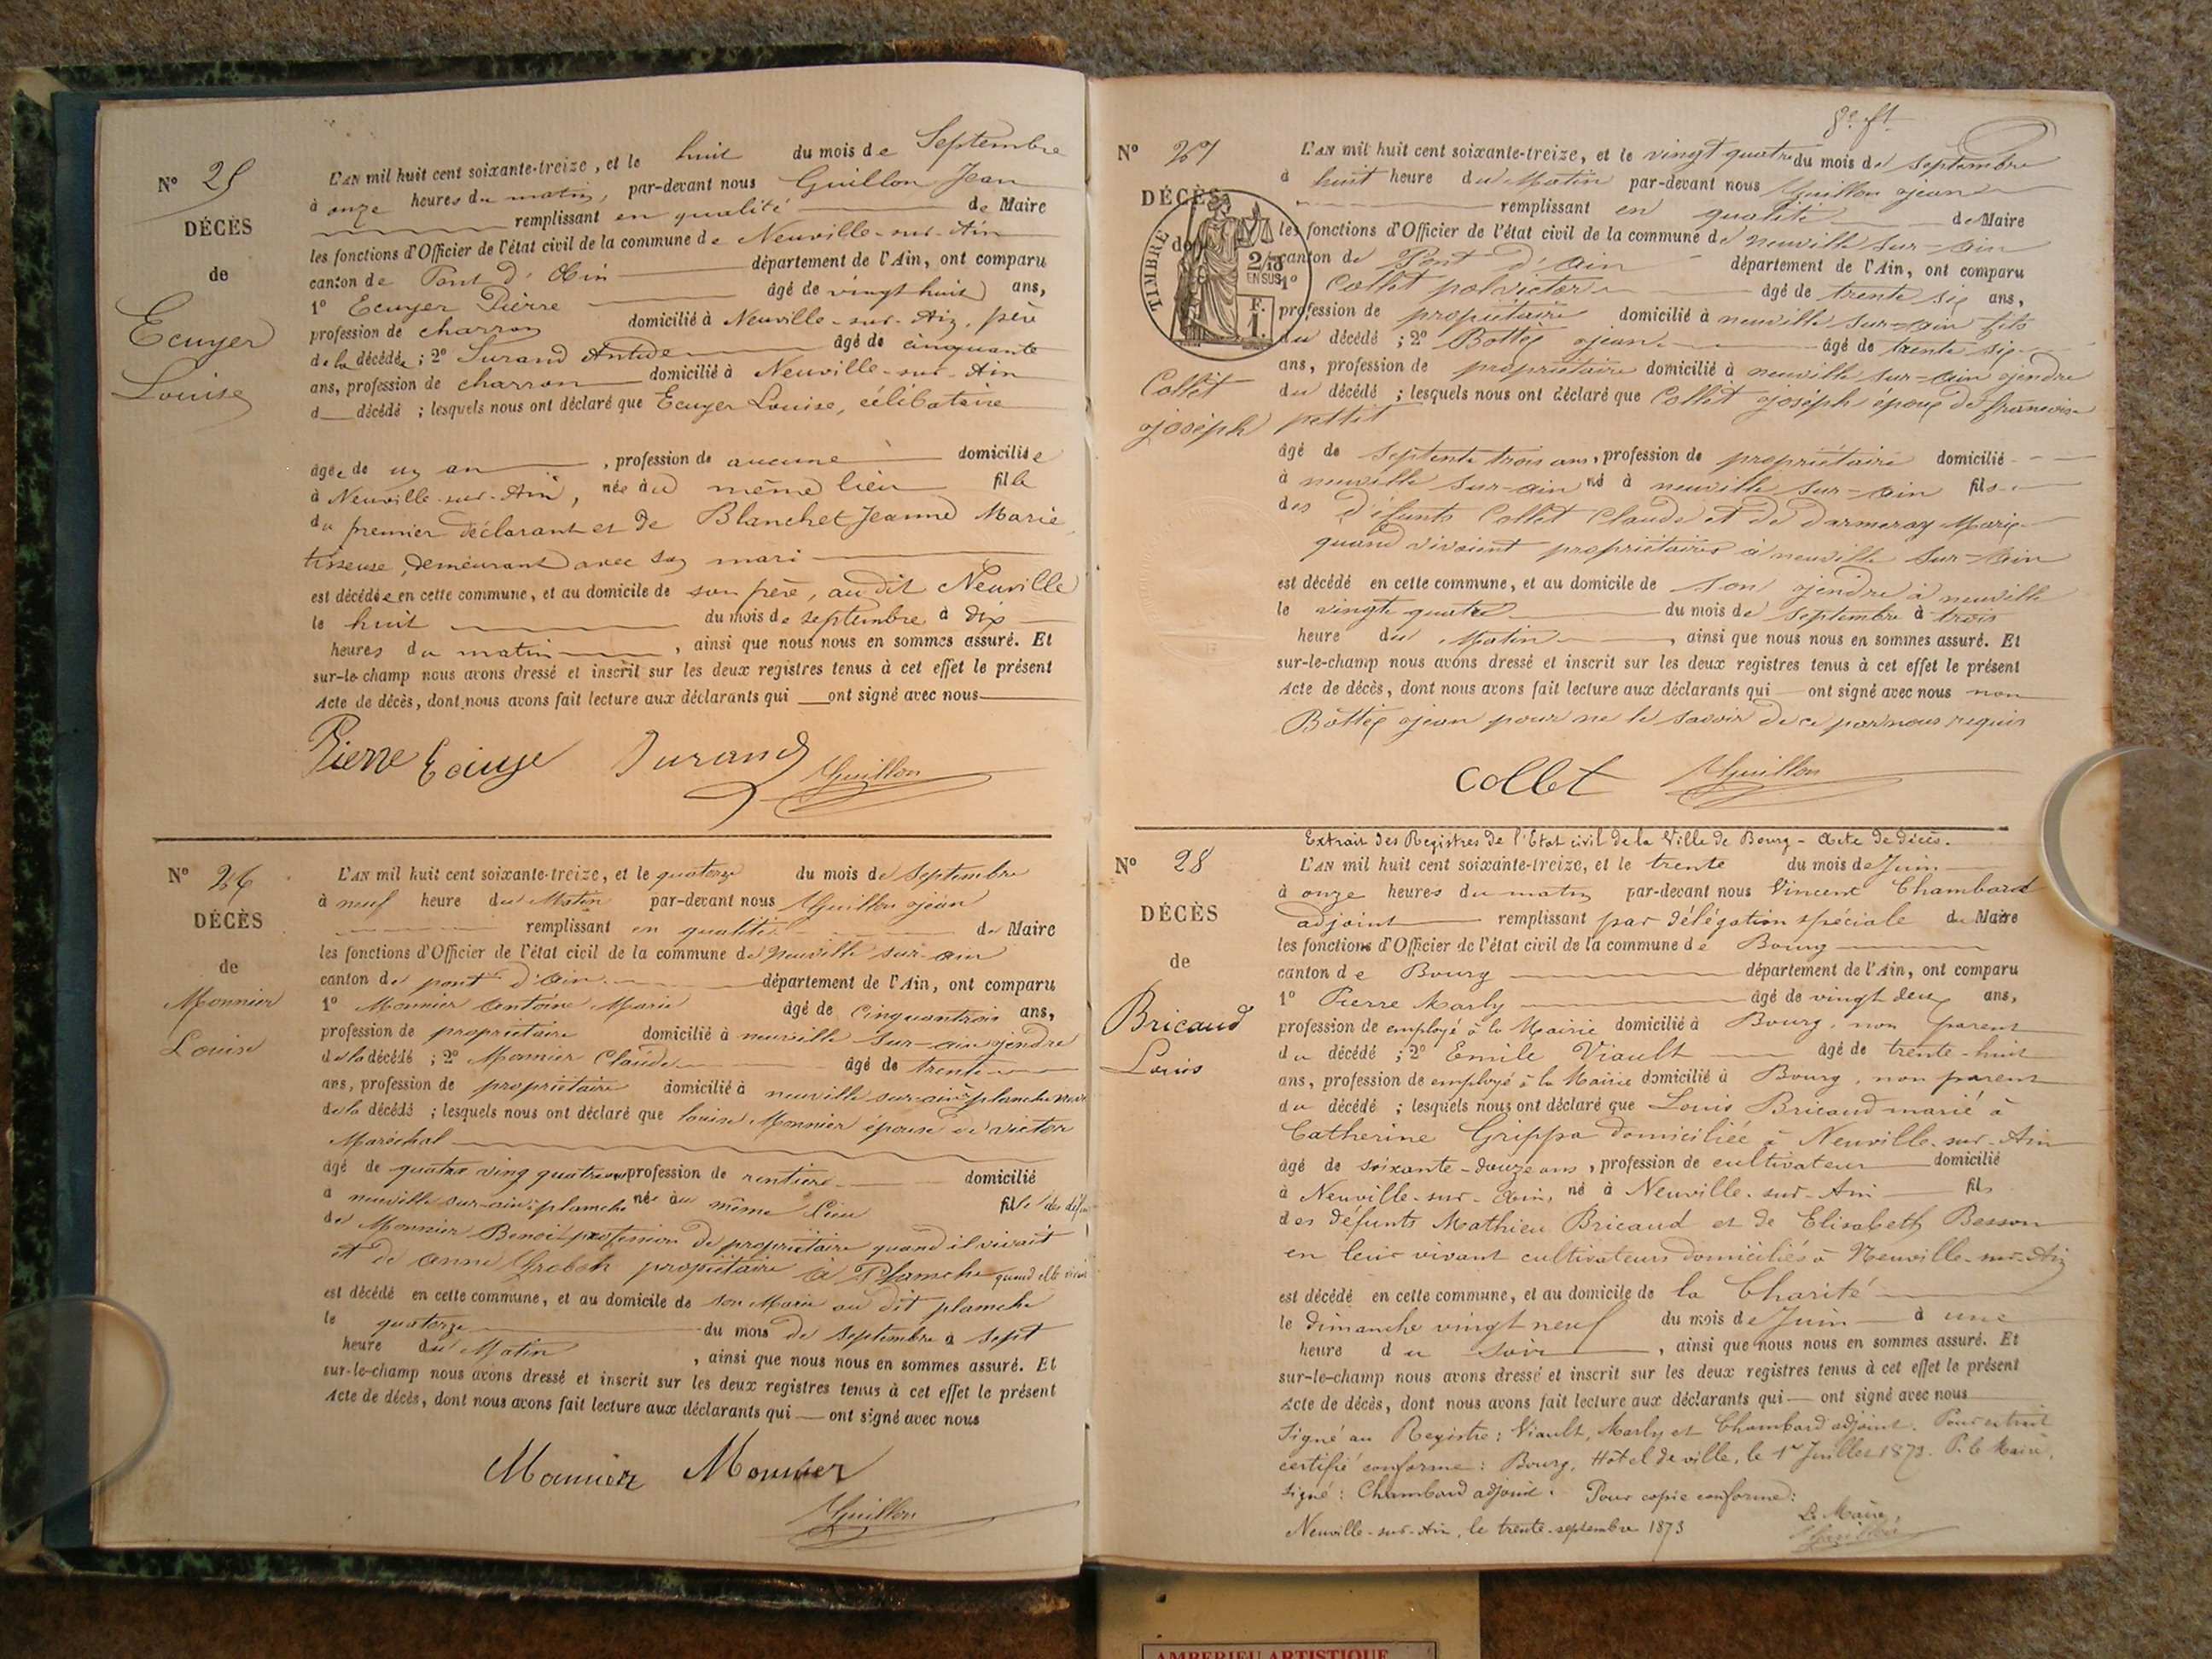 N° 25
DÉCÈS
de
Ecuyer
Louise
L'AN mil huit cent soixante-treize, et le huit du mois de Septembre
à onze heures du matin, par-devant nous Guillon Jean
remplissant en qualité de Maire
les fonctions d'Officier de l'état civil de la commune de Neuville-sur-Ain
canton de Pont d'Ain département de l'Ain, ont comparu
1° Ecuyer Pierre âgé de vingt huit ans,
profession de charron domicilié à Neuville-sur-Ain, père
de la décédée ; 2° Durand Antide âgé de cinquante
ans, profession de charron domicilié à Neuville-sur-Ain
d décédé ; lesquels nous ont déclaré que Ecuyer Louise, célibataire
âgée de un an, profession de aucune domiciliée
à Neuville-sur-Ain, née au même lieu fille
du premier déclarant et de Blanchet Jeanne Marie
tisseuse, demeurant avec son mari
est décédée en cette commune, et au domicile de son père, au dit Neuville
le huit du mois de septembre à dix
heures du matin, ainsi que nous nous en sommes assuré. Et
sur-le-champ nous avons dressé et inscrit sur les deux registres tenus à cet effet le présent
Acte de décès, dont nous avons fait lecture aux déclarants qui ont signé avec nous
Pierre Durand Guillon
N° 26
DÉCÈS
de
Monnier
Louise
L'AN mil huit cent soixante-treize, et le quatorze du mois de Septembre
à neuf heure du Matin par-devant nous Guillon jean
remplissant en qualité de Maire
les fonctions d'Officier de l'état civil de la commune de neuville sur-ain
canton de pont d'ain département de l'Ain, ont comparu
1° Monnier Antoine Marie âgé de Cinquantrois ans,
profession de propriétaire domicilié à neuville sur-ain jendre
de la décédé ; 2° Monnier Claude âgé de trente
ans, profession de propriétaire domicilié à neuville sur-ain planche
de la décédé ; lesquels nous ont déclaré que louise Monnier épouse de victor
Maréchal
âgé de quatre ving quatre profession de rentiere domicilié
à neuville sur-ain planche née au même lieu fille des
de Monnier Benoit profession de propriétaire quand il vivait
et de anne propriétaire à Planche quand elle
est décédé en cette commune, et au domicile de son Marie au dit planche
le quatorze du mois de septembre à sept
heure du Matin, ainsi que nous nous en sommes assuré. Et
sur-le-champ nous avons dressé et inscrit sur les deux registres tenus à cet effet le présent
Acte de décès, dont nous avons fait lecture aux déclarants qui ont signé avec nous
Monnier Monnier
Guillon
N° 27
DÉCÈS
de
TIMBRE
2/10
EN SUS
F.
1.
Collet
joséph
L'AN mil huit cent soixante-treize, et le vingt quatre du mois de septembre
à huit heure du Matin par-devant nous Guillon jean
remplissant en qualité de Maire
les fonctions d'Officier de l'état civil de la commune de neuville sur-ain
canton de Pont d'ain département de l'Ain, ont comparu
1° Collet polvictor âgé de trente six ans,
profession de propriétaire domicilié à neuville sur-ain fils
du décédé ; 2° Bottex jean âgé de trente six
ans, profession de propriétaire domicilié à neuville sur-ain jendre
du décédé ; lesquels nous ont déclaré que Collet joséph époux de francoise
pettit
âgé de septente trois ans, profession de propriétaire domicilié
à neuville sur-ain né à neuville sur-ain fils
des défunts Collet Claude et de Marie
quand vivaient propriétaires à neuville sur-ain
est décédé en cette commune, et au domicile de son jendre à neuville
le vingt quatre du mois de septembre à trois
heure du Matin, ainsi que nous nous en sommes assuré. Et
sur-le-champ nous avons dressé et inscrit sur les deux registres tenus à cet effet le présent
Acte de décès, dont nous avons fait lecture aux déclarants qui ont signé avec nous non
Bottex jean pour ne le savoir de ce par nous requis
Collet Guillon
Extrait des Registres de l'Etat civil de la Ville de Bourg - Acte de décès.
N° 28
DÉCÈS
de
Bricaud
Louis
L'AN mil huit cent soixante-treize, et le trente du mois de Juin
à onze heures du matin par-devant nous Vincent Chambard
adjoint remplissant par délégation spéciale du Maire
les fonctions d'Officier de l'état civil de la commune de Bourg
canton de Bourg département de l'Ain, ont comparu
1° Pierre Marly âgé de vingt deux ans,
profession de employé à la Mairie domicilié à Bourg, non parent
du décédé ; 2° Emile Viault âgé de trente-huit
ans, profession de employé à la Mairie domicilié à Bourg, non parent
du décédé ; lesquels nous ont déclaré que Louis Bricaud marié à
Catherine Grippa domiciliée à Neuville-sur-Ain
âgé de soixante-douze ans, profession de cultivateur domicilié
à Neuville-sur-Ain, né à Neuville-sur-Ain fils
des défunts Mathieu Bricaud et de Elisabeth Besson
en leur vivant cultivateurs domiciliés à Neuville-sur-Ain
est décédé en cette commune, et au domicile de la Charité
le dimanche vingt neuf du mois de Juin à une
heure du soir, ainsi que nous nous en sommes assuré. Et
sur-le-champ nous avons dressé et inscrit sur les deux registres tenus à cet effet le présent
Acte de décès, dont nous avons fait lecture aux déclarants qui ont signé avec nous
Signé au Registre : Viault, Marly et Chambard adjoint. Pour extrait
certifié conforme : Bourg, Hôtel de ville, le 1er Juillet 1873. P. le Maire,
signé : Chambard adjoint. Pour copie conforme :
Neuville-sur-Ain, le trente septembre 1873
Le Maire,
Guillon
AMBERIEU ARTISTIQUE